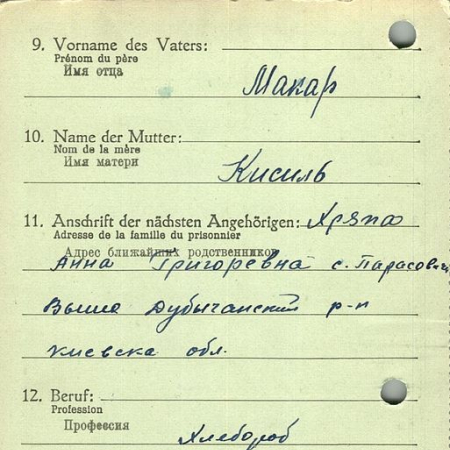 9. Vorname des Vaters:
Prénom du père
Имя отца
Макар
10. Name der Mutter:
Nom de la mère
Имя матери
Кисиль
11. Anschrift der nächsten Angehörigen: Хряпа
Adresse de la famille du prisonnier
Адрес ближайших родственников
Анна Григоревна с. Парасович
Выше Дубычанский р-н
киевска обл.
12. Beruf:
Profession
Профессия
Хлебороб